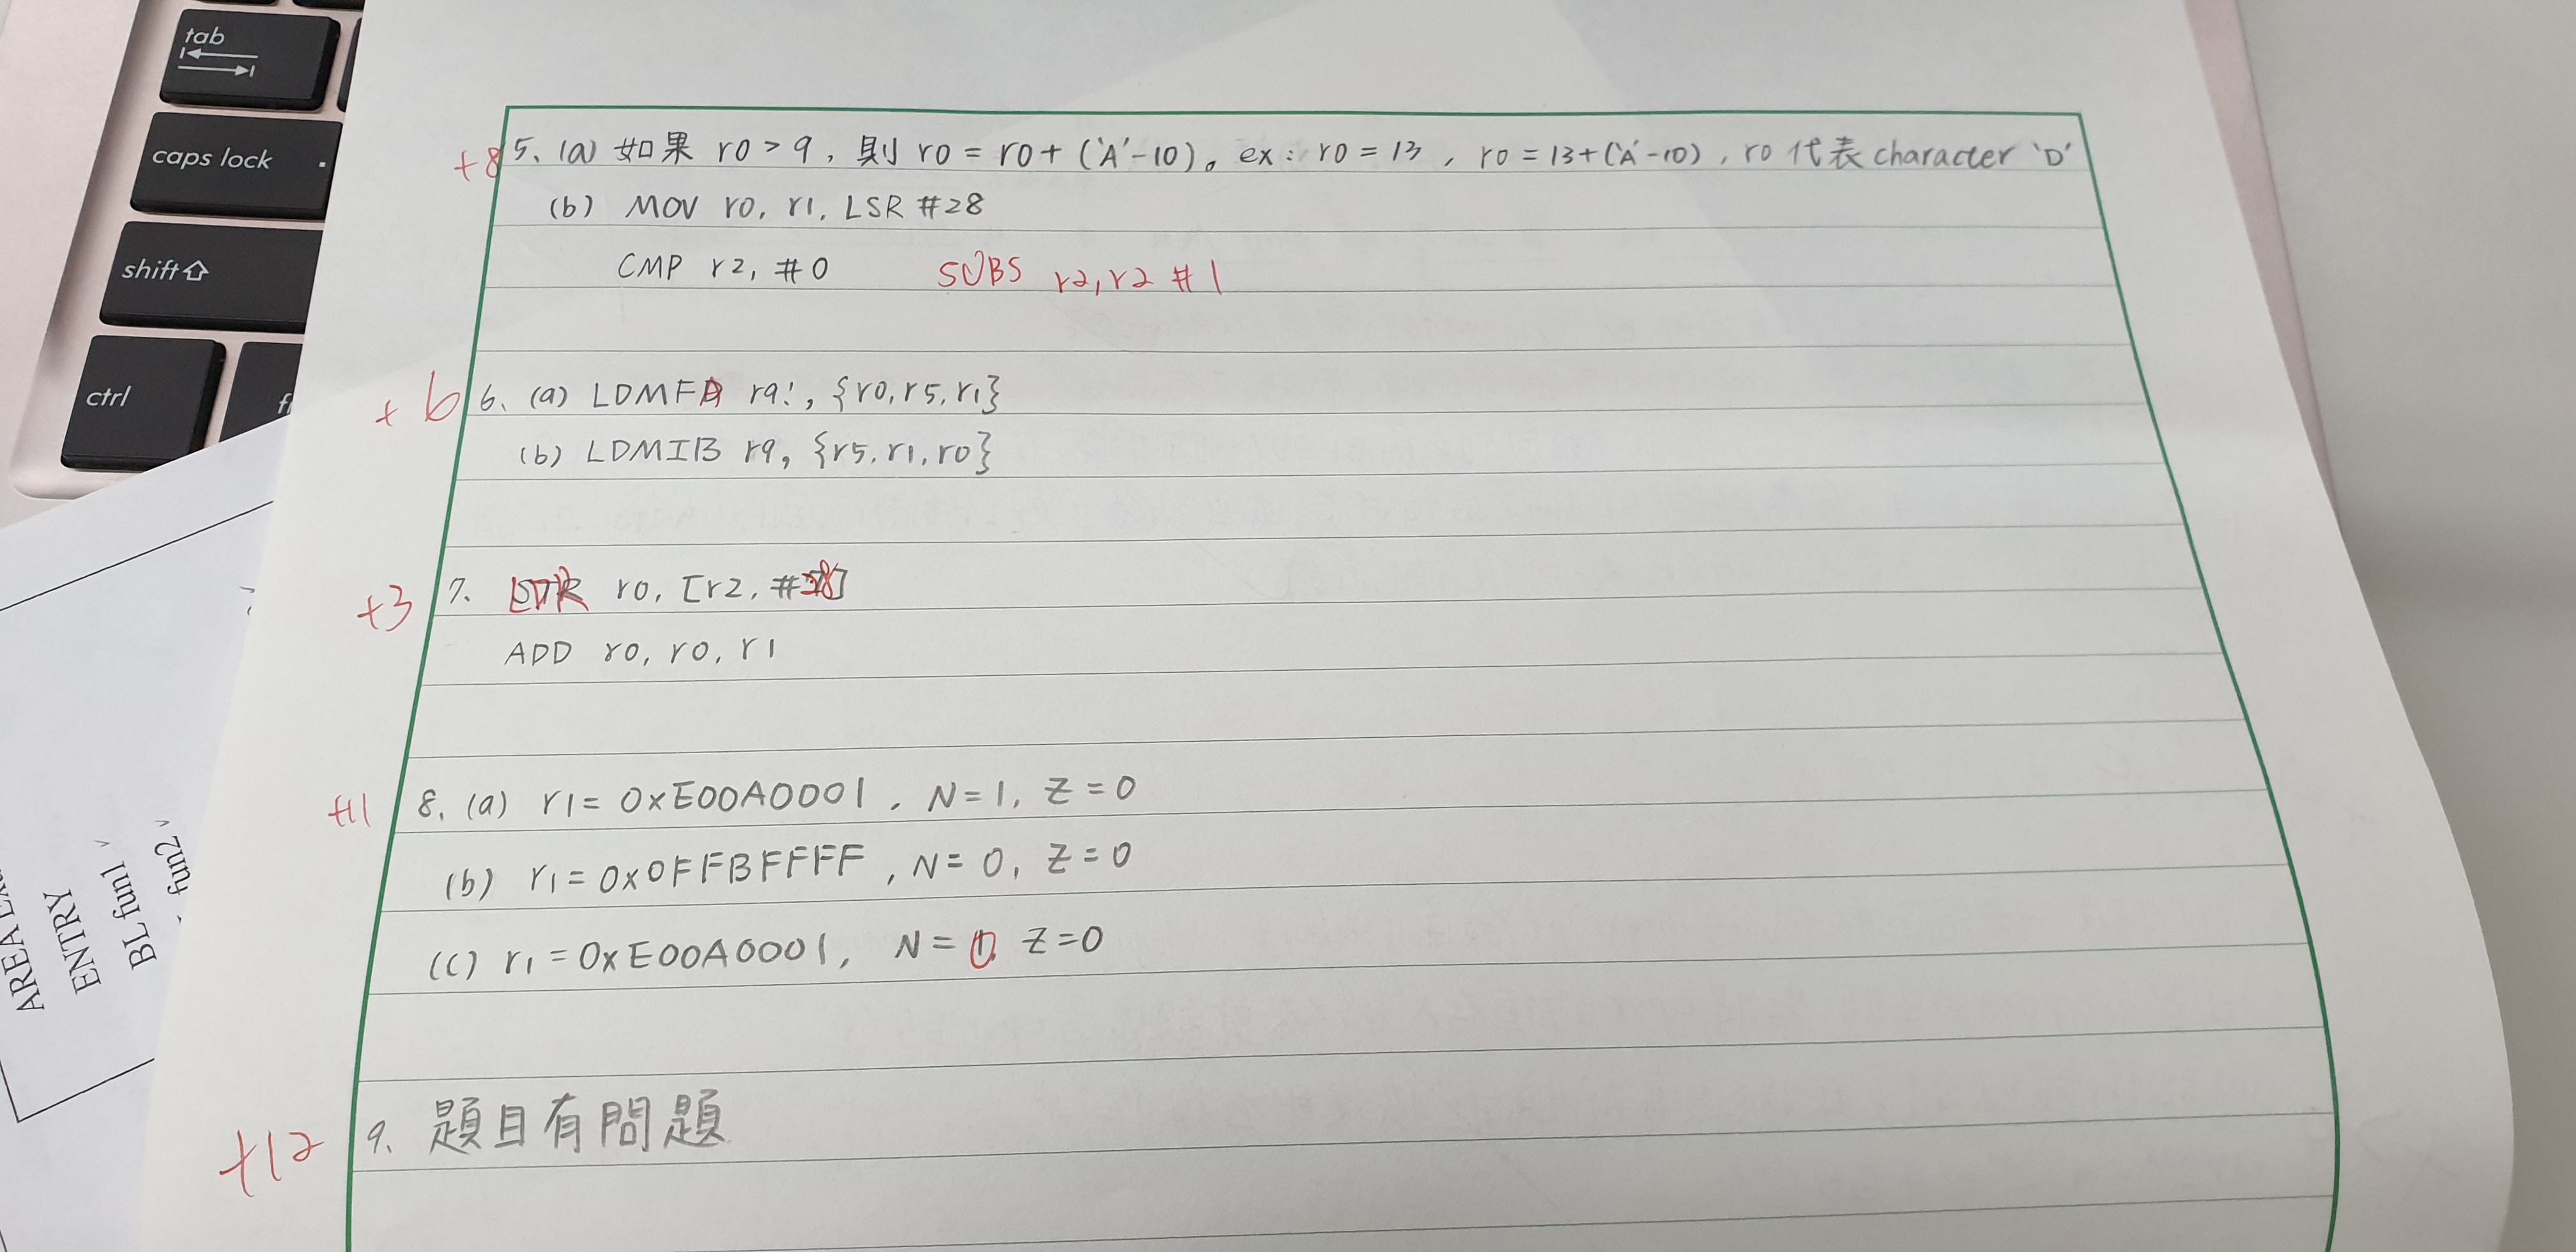 tab
caps lock
shift
ctrl
+8 5. (a) 如果 r0 > 9, 則 r0 = r0 + ('A' - 10)。ex: r0 = 13, r0 = 13 + ('A' - 10), r0 代表 character 'D'
(b) MOV r0, r1, LSR #28
CMP r2, #0 SUBS r2, r2 #1
+6 6. (a) LDMFA r9!, {r0, r5, r1}
(b) LDMIB r9, {r5, r1, r0}
+3 7. r0, [r2, #
ADD r0, r0, r1
+11 8. (a) r1 = 0xE00A0001, N = 1, Z = 0
(b) r1 = 0x0FFBFFFF, N = 0, Z = 0
(c) r1 = 0xE00A0001, N = Z = 0
+12 9. 題目有問題
AREA
ENTRY
BL fun1
fun2